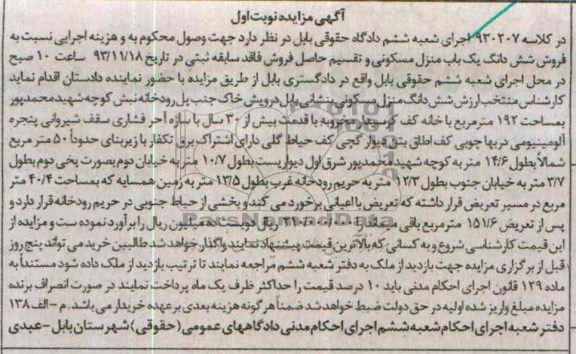 آگهی مزایده نوبت اول
در کلاسه ۹۳۰۲۰۷ اجرای شعبه ششم دادگاه حقوقی بابل در نظر دارد جهت وصول محکوم به و هزینه اجرایی نسبت به
فروش شش دانگ یک باب منزل مسکونی و تقسیم حاصل فروش فاقد سابقه ثبتی در تاریخ ۹۳/۱۱/۱۸ ساعت ۱۰ صبح
در محل اجرای شعبه ششم حقوقی بابل واقع در دادگستری بابل از طریق مزایده با حضور نماینده دادستان اقدام نماید
کارشناس منتخب ارزش شش دانگ منزل مسکونی بنشانی بابل درویش خاک جنب پل رودخانه نبش کوچه شهید محمدپور
بمساحت ۱۹۲ مترمربع با خانه کف کرسیدار مخروبه با قدمت بیش از ۳۰ سال با سازه آجر فشاری سقف شیروانی پنجره
آلومینیومی دربها چوبی کف اطاق بتن دیوار گچی کف حیاط گلی دارای اشتراک برق تکفاز با زیربنای حدوداً ۵۰ متر مربع
شمالاً بطول ۱۴/۶ متر به کوچه شهید احمدپور شرق اول دیواریست بطول ۱۰/۷ متر به خیابان دوم بصورت پخی دوم بطول
۳/۷ متر به خیابان جنوب بطول ۱۲/۳ متر به حریم رودخانه غرب بطول ۱۳/۵ متر به زمین همسایه که بمساحت ۴۰/۴ متر
مربع در مسیر تعریض قرار داشته که تعریض با اعیانی برخورد می کند و بخشی از حیاط جنوبی در حریم رودخانه قرار دارد و
پس از تعریض ۱۵۱/۶ مترمربع باقی میماند از ریال دویست ده میلیون ریال را برآورد نموده ست و مزایده از
این قیمت کارشناسی شروع و به کسانی که بالاترین قیمت پیشنهاد نمایند واگذار خواهد شد طالبین خرید می تواند پنج روز
قبل از برگزاری مزایده جهت بازدید از ملک به دفتر شعبه ششم مراجعه نمایند تا ترتیب بازدید از ملک داده شود مستنداً به
ماده ۱۲۹ قانون اجرای احکام مدنی باید ۱۰ درصد قیمت را حداکثر ظرف یک ماه پرداخت نمایند در صورت انصراف برنده
مزایده مبلغ واریز شده اولیه در حق دولت ضبط خواهد شد ضمناً هر گونه هزینه بعدی بر عهده خریدار می باشد. م - الف ۱۳۸
دفتر شعبه اجرای احکام شعبه ششم اجرای احکام مدنی دادگاههای عمومی (حقوقی) شهرستان بابل - عبدی